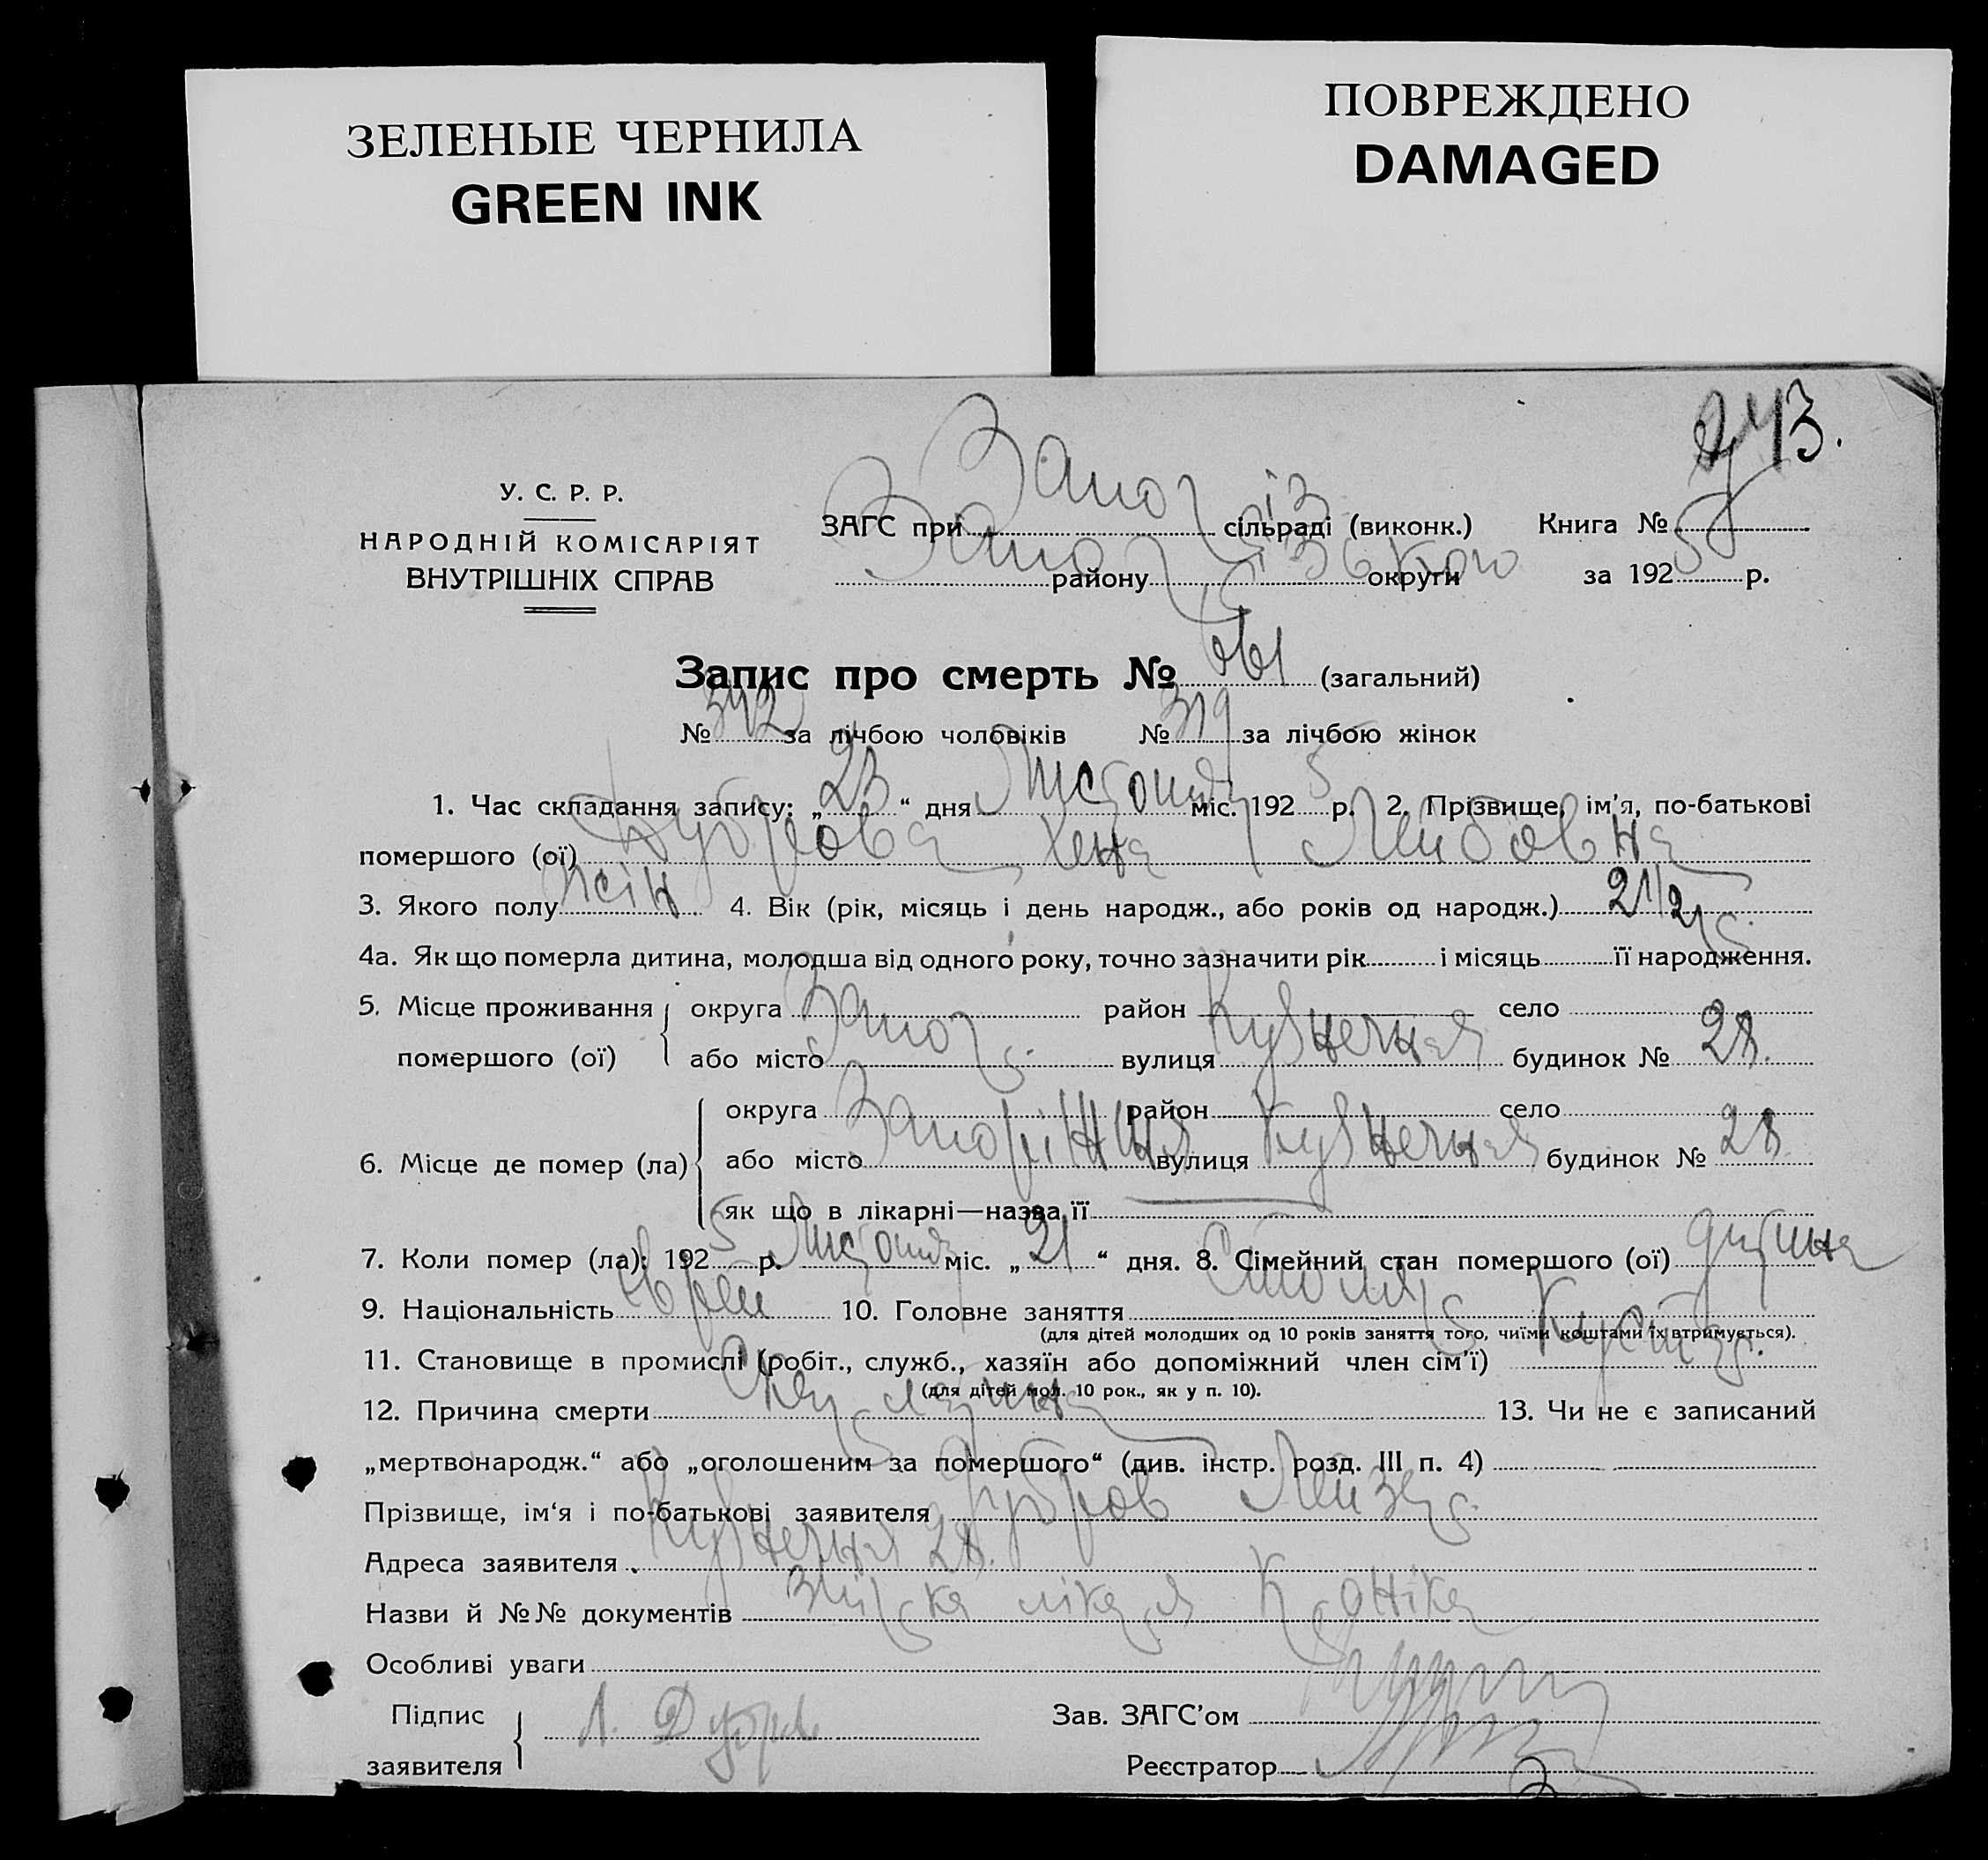 ЗЕЛЕНЫЕ ЧЕРНИЛА
GREEN INK
ПОВРЕЖДЕНО
DAMAGED
243.
У. С. Р. Р.
НАРОДНІЙ КОМІСАРІЯТ
ВНУТРІШНІХ СПРАВ
ЗАГС при Запоріз сільраді (виконк.)
Запорізького району округи
Книга № 5
за 1925 р.
Запис про смерть № 661 (загальний)
№ 342 за лічбою чоловіків № 319 за лічбою жінок
1. Час складання запису: „23“ дня Листопад міс. 1925 р. 2. Прізвище, ім’я, по-батькові
помершого (ої) Дуброва Хена Лейбовна
3. Якого полу жін 4. Вік (рік, місяць і день народж., або років од народж.) 2 1/2 р.
4а. Як що померла дитина, молодша від одного року, точно зазначити рік і місяць її народження.
5. Місце проживання округа район село
помершого (ої) або місто Запор. вулиця Кузнечная будинок № 28.
округа район село
6. Місце де помер (ла) або місто Запоріжжя вулиця Кузнечная будинок № 28
як що в лікарні—назва її
7. Коли помер (ла): 1925 р. Листопад міс. „21“ дня. 8. Сімейний стан помершого (ої) дитина
9. Національність еврей 10. Головне заняття Столяр Кустар.
(для дітей молодших од 10 років заняття того, чиїми коштами їх втримується).
11. Становище в промислі (робіт., служб., хазяїн або допоміжний член сім’ї)
(для дітей мол. 10 рок., як у п. 10).
12. Причина смерти Скарлатина 13. Чи не є записаний
„мертвонародж.“ або „оголошеним за помершого“ (див. інстр. розд. III п. 4)
Прізвище, ім‘я і по-батькові заявителя Дубров Лейзер
Адреса заявителя Кузнечная 28.
Назви й №№ документів лікаря
Особливі уваги
Підпис
заявителя Л. Дубров
Зав. ЗАГС’ом
Реєстратор